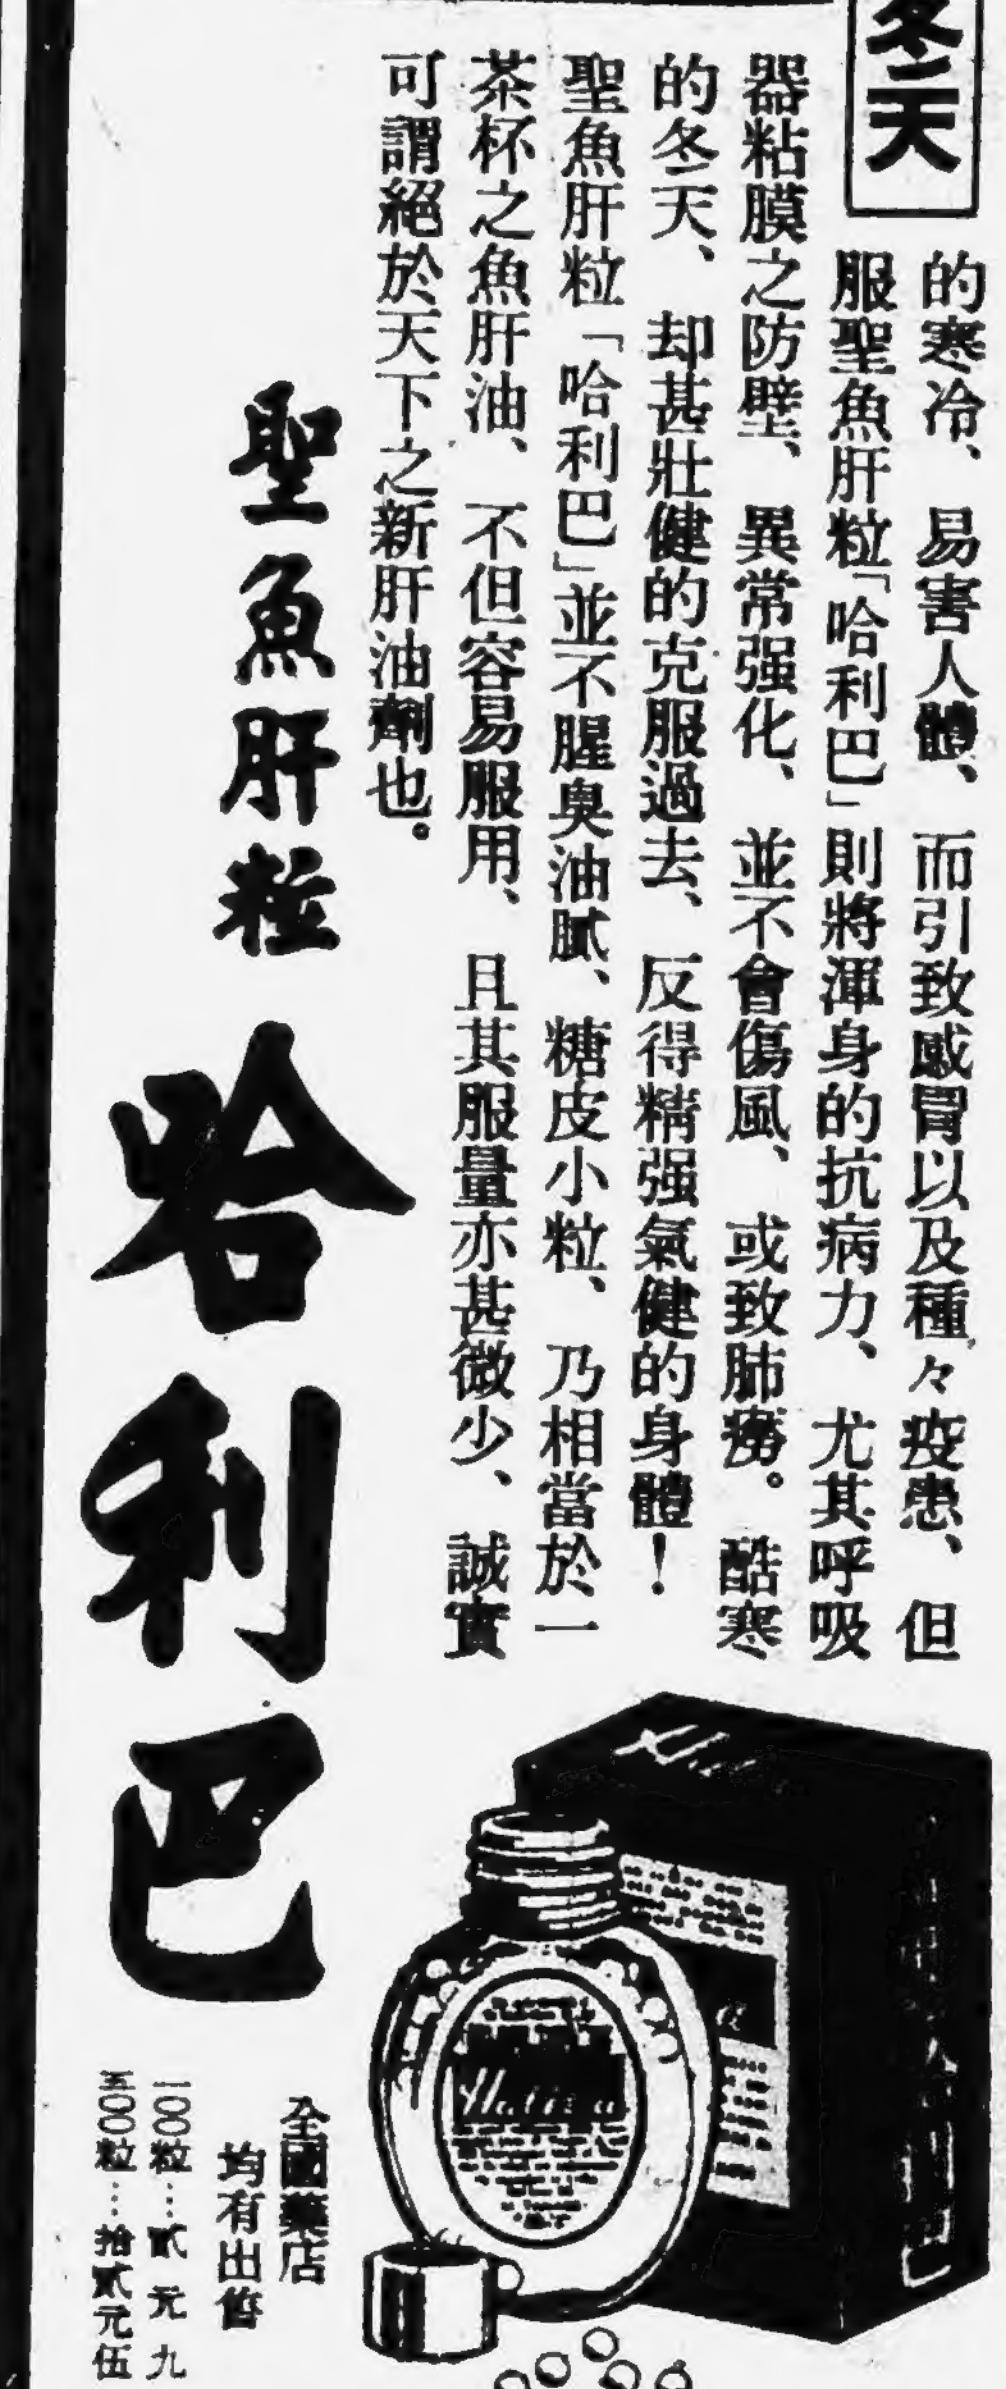 冬天
的寒冷、易害人體、而引致感冒以及種々疫患、但
服聖魚肝粒「哈利巴」則將渾身的抗病力、尤其呼吸
器粘膜之防壁、異常强化、並不會傷風、或致肺癆。酷寒
的冬天、却甚壯健的克服過去、反得精强氣健的身體！
聖魚肝粒「哈利巴」並不腥臭油膩、糖皮小粒、乃相當於一
茶杯之魚肝油、不但容易服用、且其服量亦甚微少、誠實
可謂絕於天下之新肝油劑也。
聖魚肝粒 哈利巴
全國藥店
均有出售
一〇〇粒…貳元九
五〇〇粒…拾貳元伍
Haliva